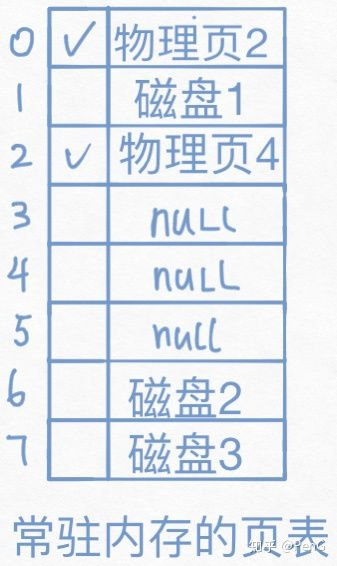 0 ✓ 物理页2
1 磁盘1
2 ✓ 物理页4
3 null
4 null
5 null
6 磁盘2
7 磁盘3
常驻内存的页表
知乎 @PenG